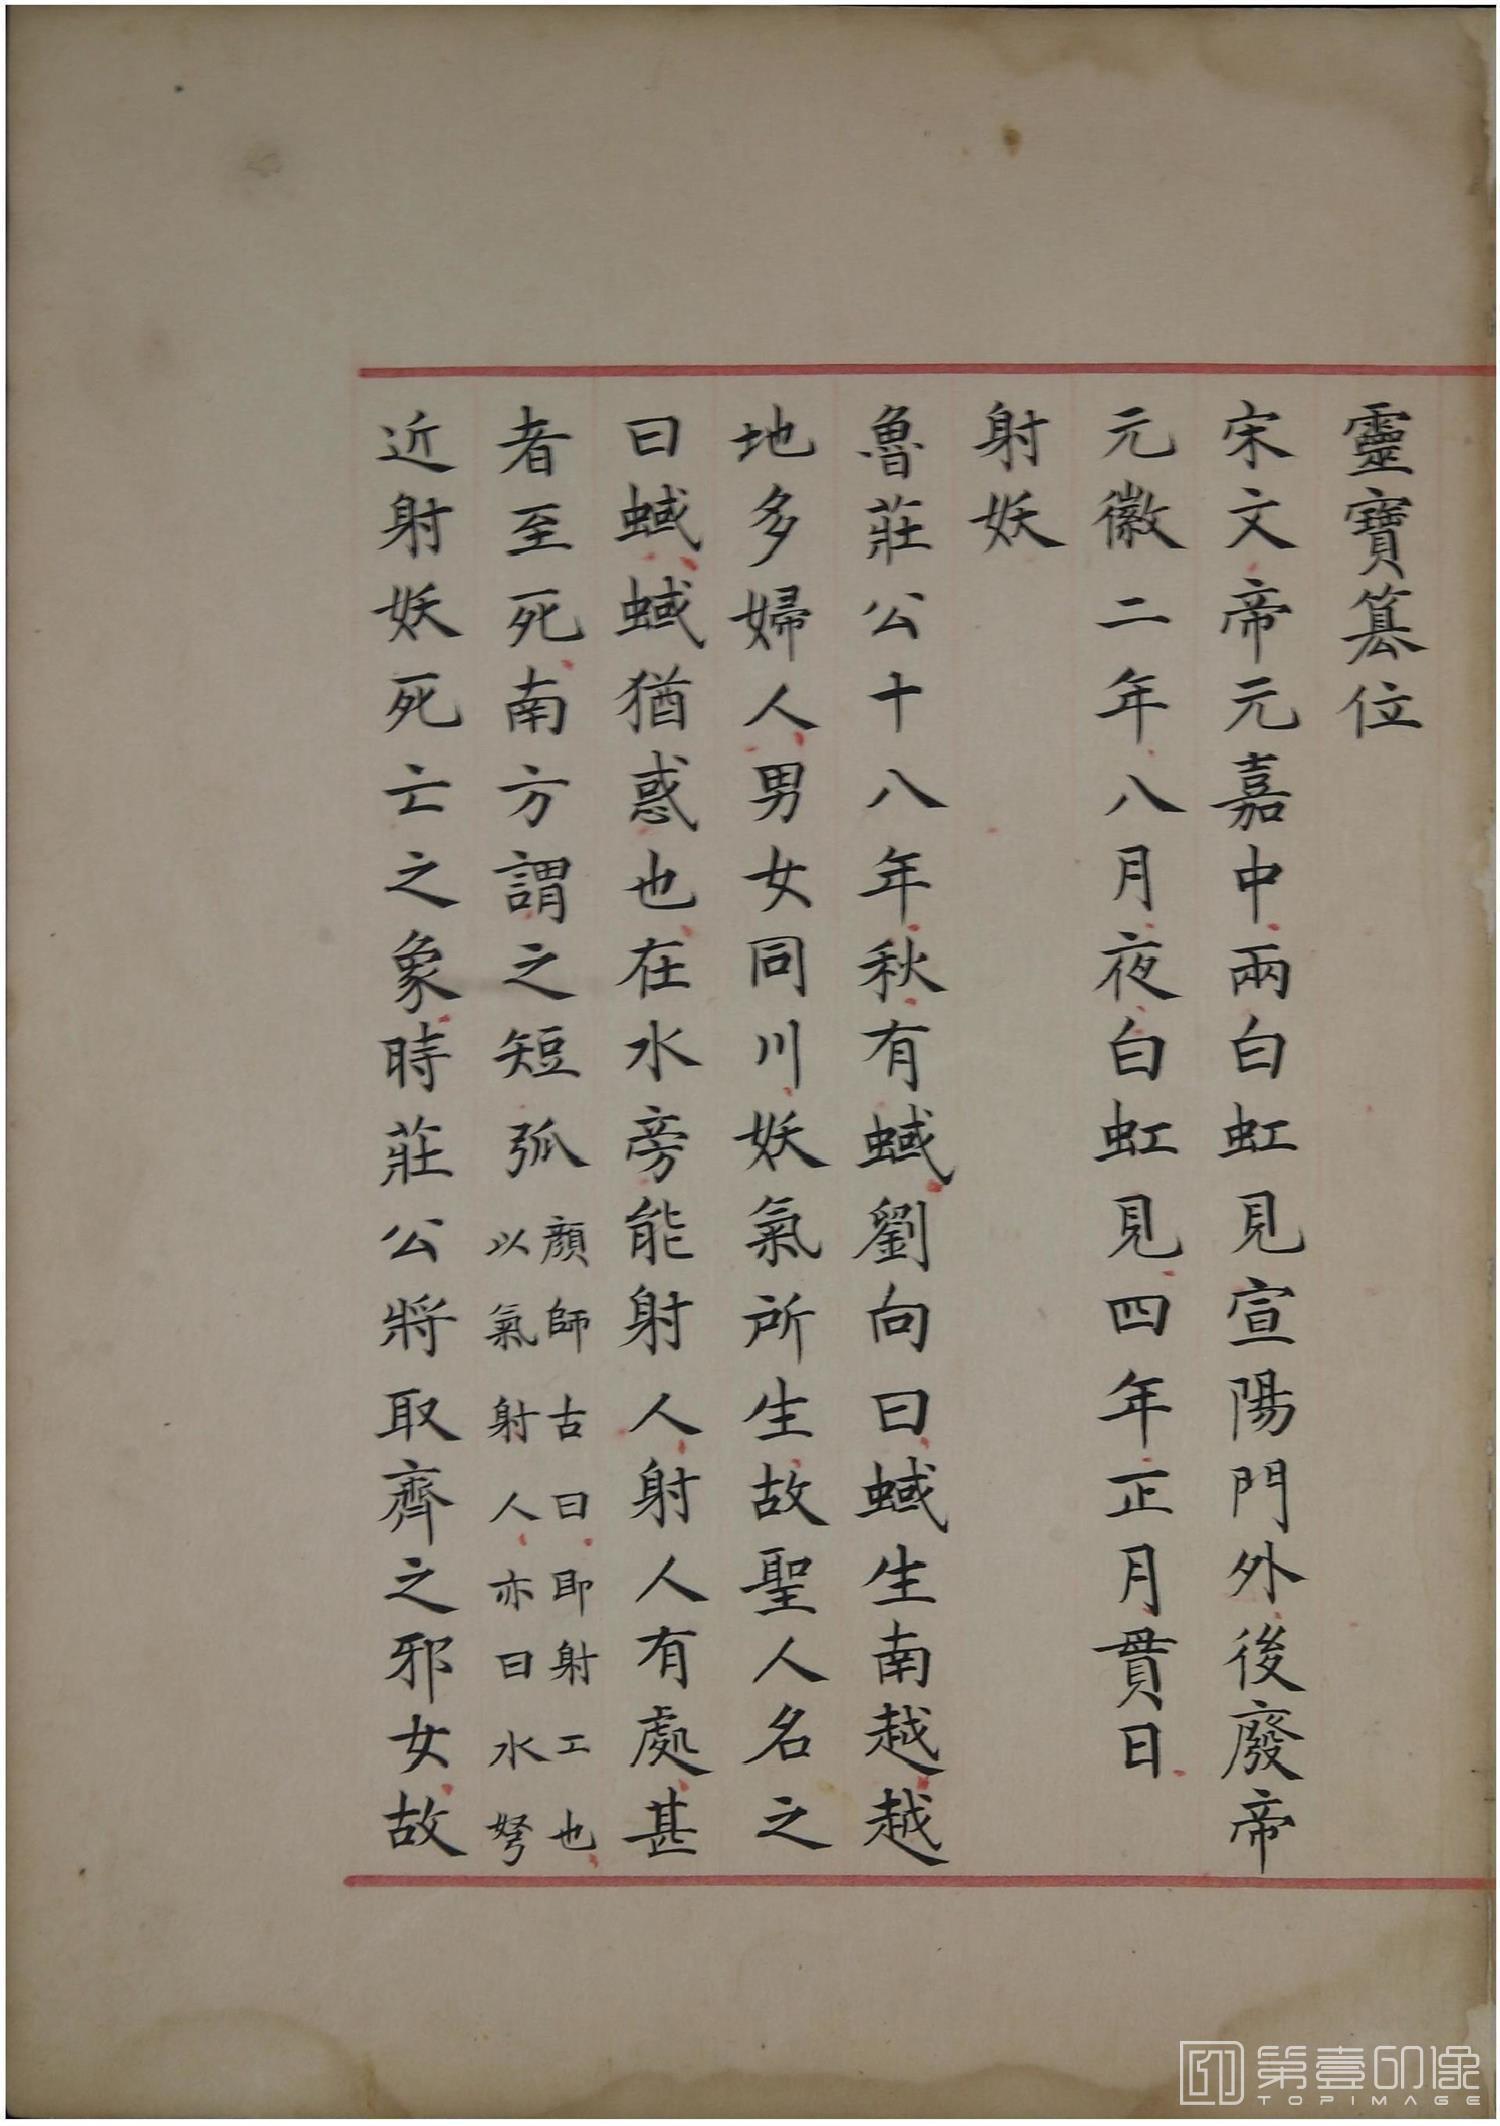 靈寶篡位
宋文帝元嘉中兩白虹見宣陽門外後廢帝
元徽二年八月夜白虹見四年正月貫日
射妖
魯莊公十八年秋有蜮劉向曰蜮生南越越
地多婦人男女同川妖氣所生故聖人名之
曰蜮蜮猶惑也在水旁能射人射人有處甚
者至死南方謂之短弧顏師古曰即射工也以氣射人亦曰水弩
近射妖死亡之象時莊公將取齊之邪女故
第壹印像
TOPIMAGE